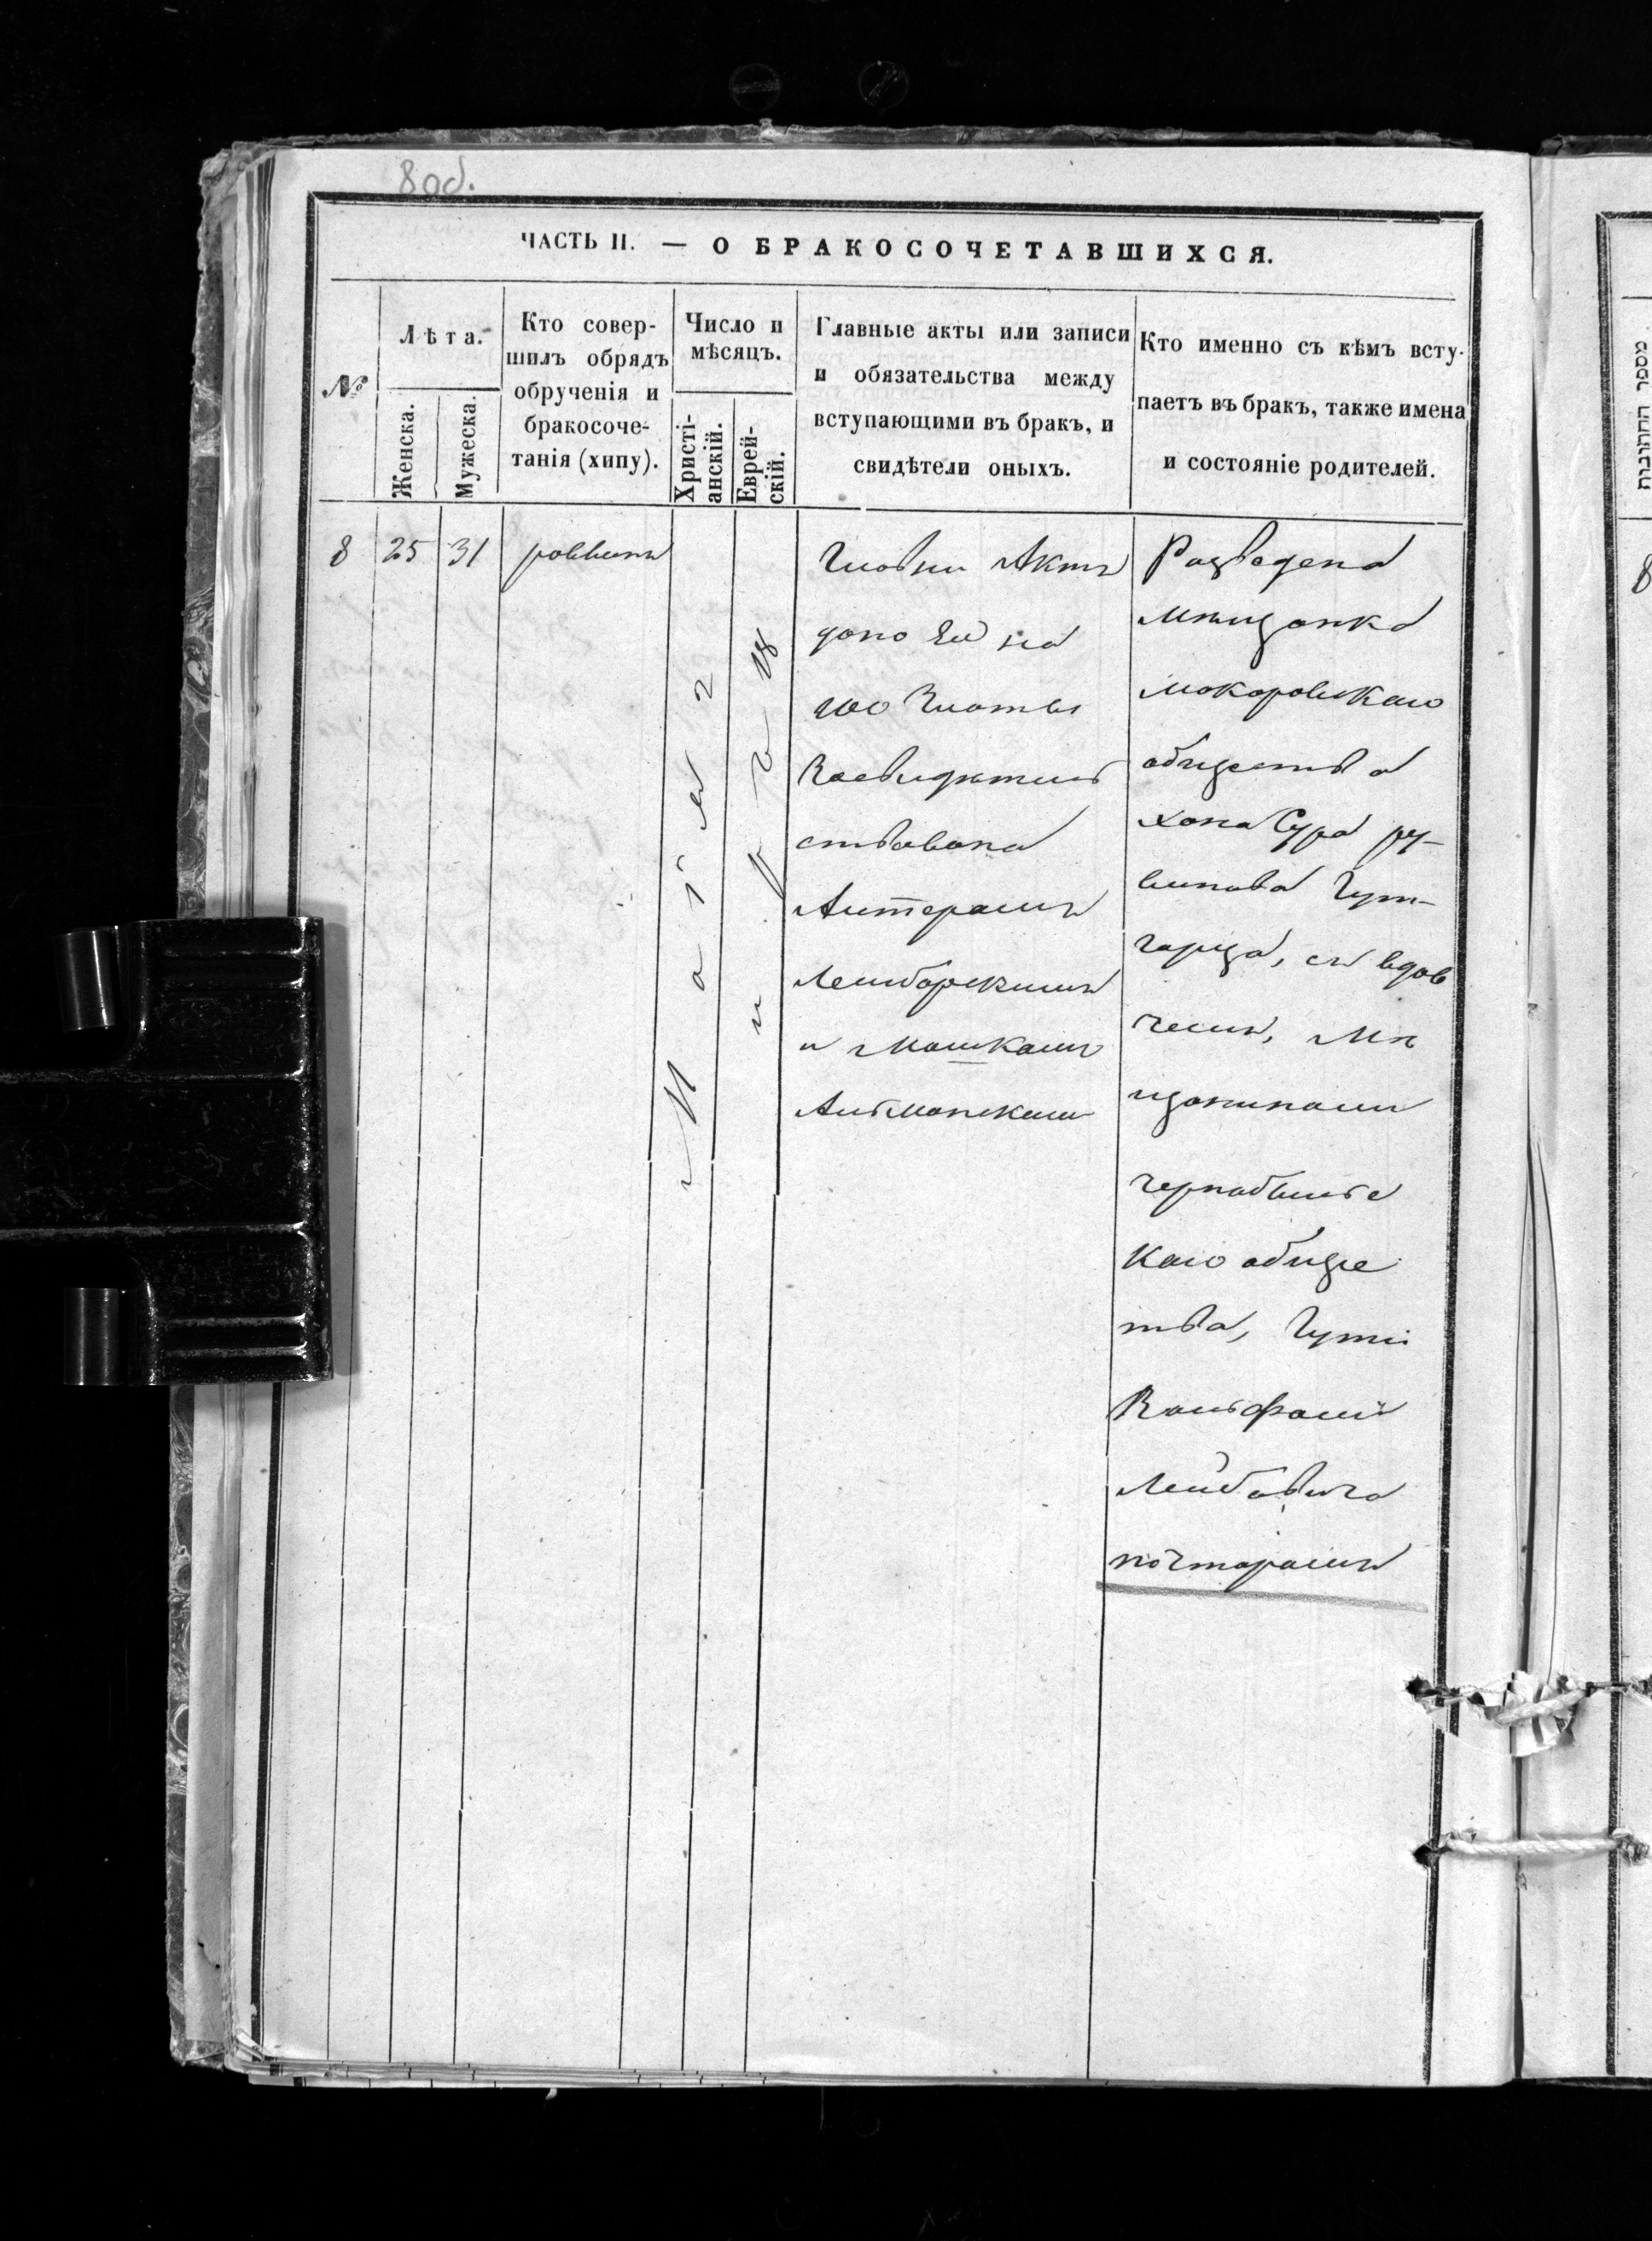 8 об.
ЧАСТЬ II. — О БРАКОСОЧЕТАВШИХСЯ.
№
Лѣта.
Женска.
Мужеска.
Кто совер-
шилъ обрядъ
обрученія и
бракосоче-
танія (хипу).
Число и
мѣсяцъ.
Христі-
анскій.
Еврей-
скій.
Главные акты или записи
и обязательства между
вступающими въ бракъ, и
свидѣтели оныхъ.
Кто именно съ кѣмъ всту-
паетъ въ бракъ, также имена
и состояніе родителей.
8 25 31
раввинъ
2
18
Главни Актъ
дано Ей на
100 Злоты
Засвидѣтель
ствована
Лемборскимъ
и Мошкамъ
Разведена
мѣщанка
макаровскаго
общества
хана Сура ру-
винова Гут-
гарца, съ вдов
чемъ, Мѣ
щаниномъ
чернобильс
каго обще
тва,
Вольфомъ
Лейбовича
почтаромъ
מספר החתונות
8